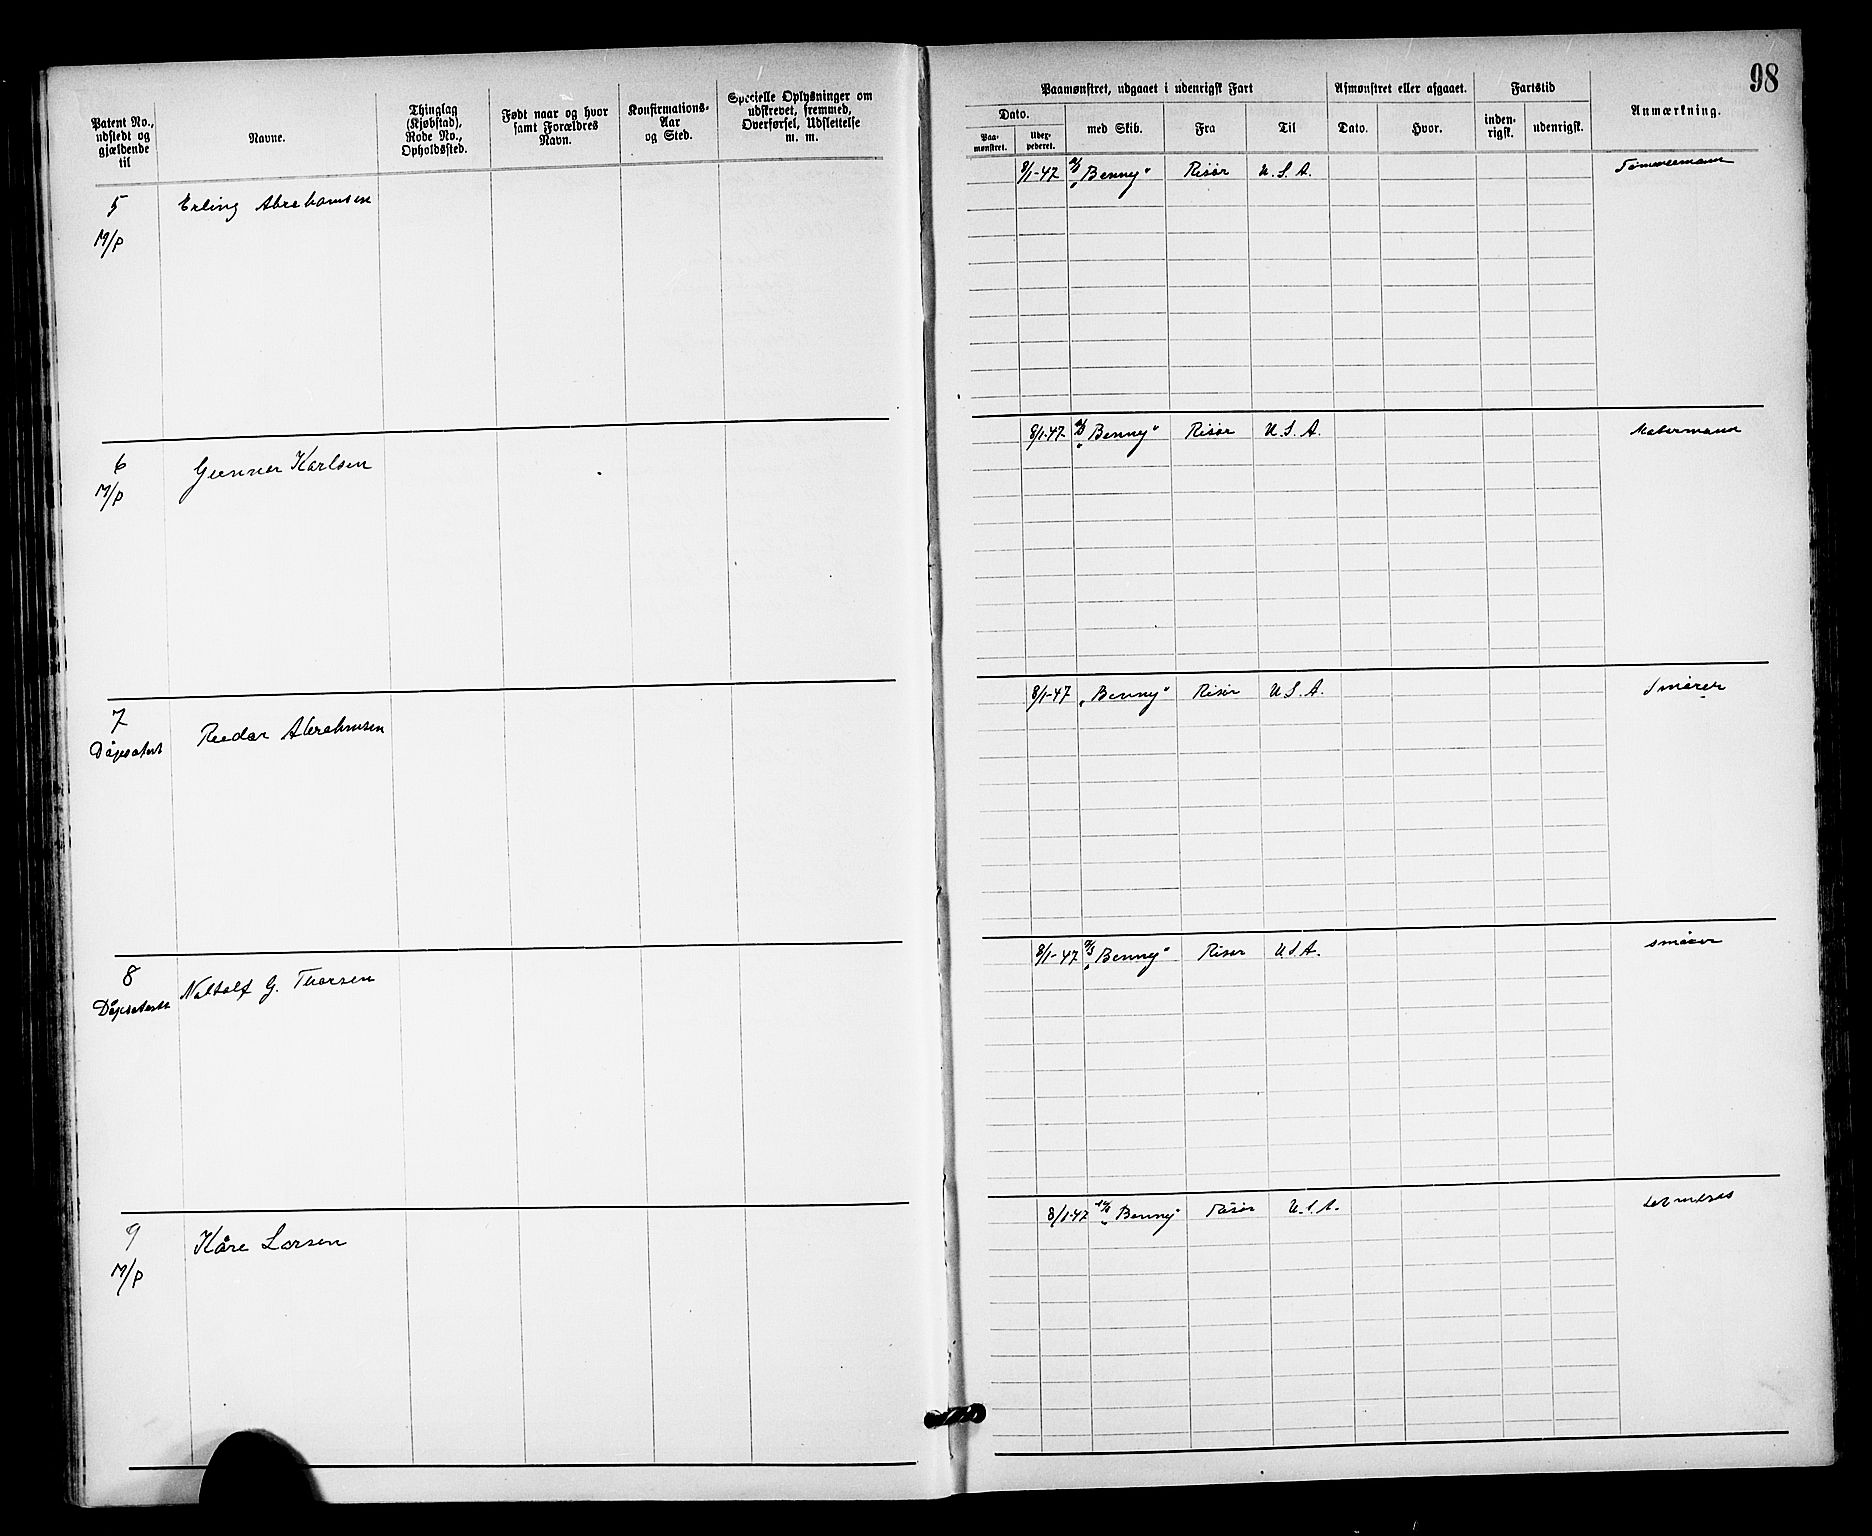 98
Patent No., udstedt og gjældende til
Navne.
Thinglag (Kjøbstad), Rode No., Opholdssted.
Født naar og hvor samt Forældres Navn.
Konfirmations-Aar og Sted.
Specielle Oplysninger om udstrevet, fremmed, Overførsel, Udslettelse m. m.
Paamønstret, udgaaet i udenrigsk Fart
Dato.
Paa-mønstret.
Uder-pederet.
med Skib.
Fra
Til
Afmønstret eller afgaaet.
Dato.
Hvor.
Fartstid
inden-rigsk.
udenrigsk.
Anmærkning.
5 Erling Abrahamsen 8/1-47 "Benny" Risør U.S.A. Tømmermann
M/P
6 Gunnar Karlsen 8/1-47 "Benny" Risør U.S.A. Motormann
M/P
7 Reidar Abrahamsen 8/1-47 "Benny" Risør U.S.A. Smører
Dåpsatest
8 G. Thorsen 8/1-47 "Benny" Risør U.S.A. smører
Dåpsatest
9 Kåre Larsen 8/1-47 "Benny" Risør U.S.A.
M/P